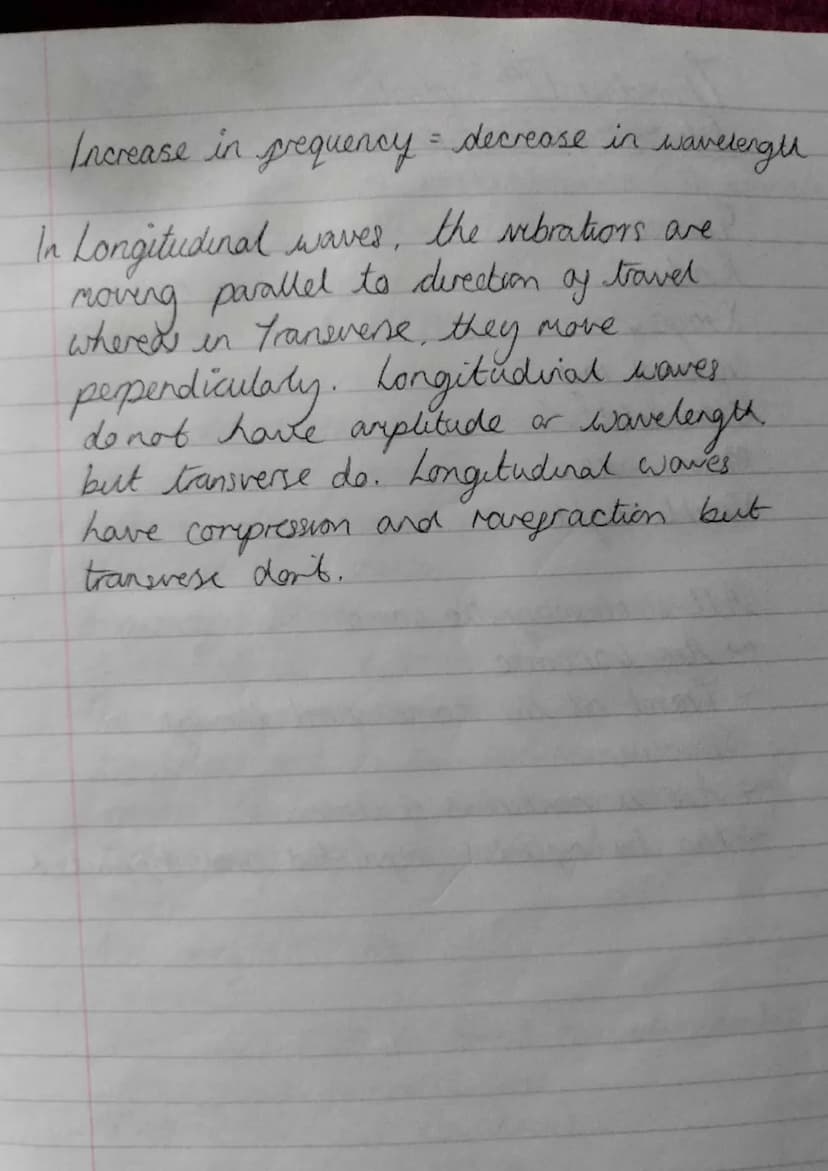 Increase in frequency = decrease in wavelength
In Longitudinal waves, the vibrations are
moving parallel to direction of travel
whereas in Transverse, they move
perpendicularly. Longitudinal waves
do not have amplitude or wavelength
but transverse do. Longitudinal waves
have compression and rarefraction but
transverse don't.